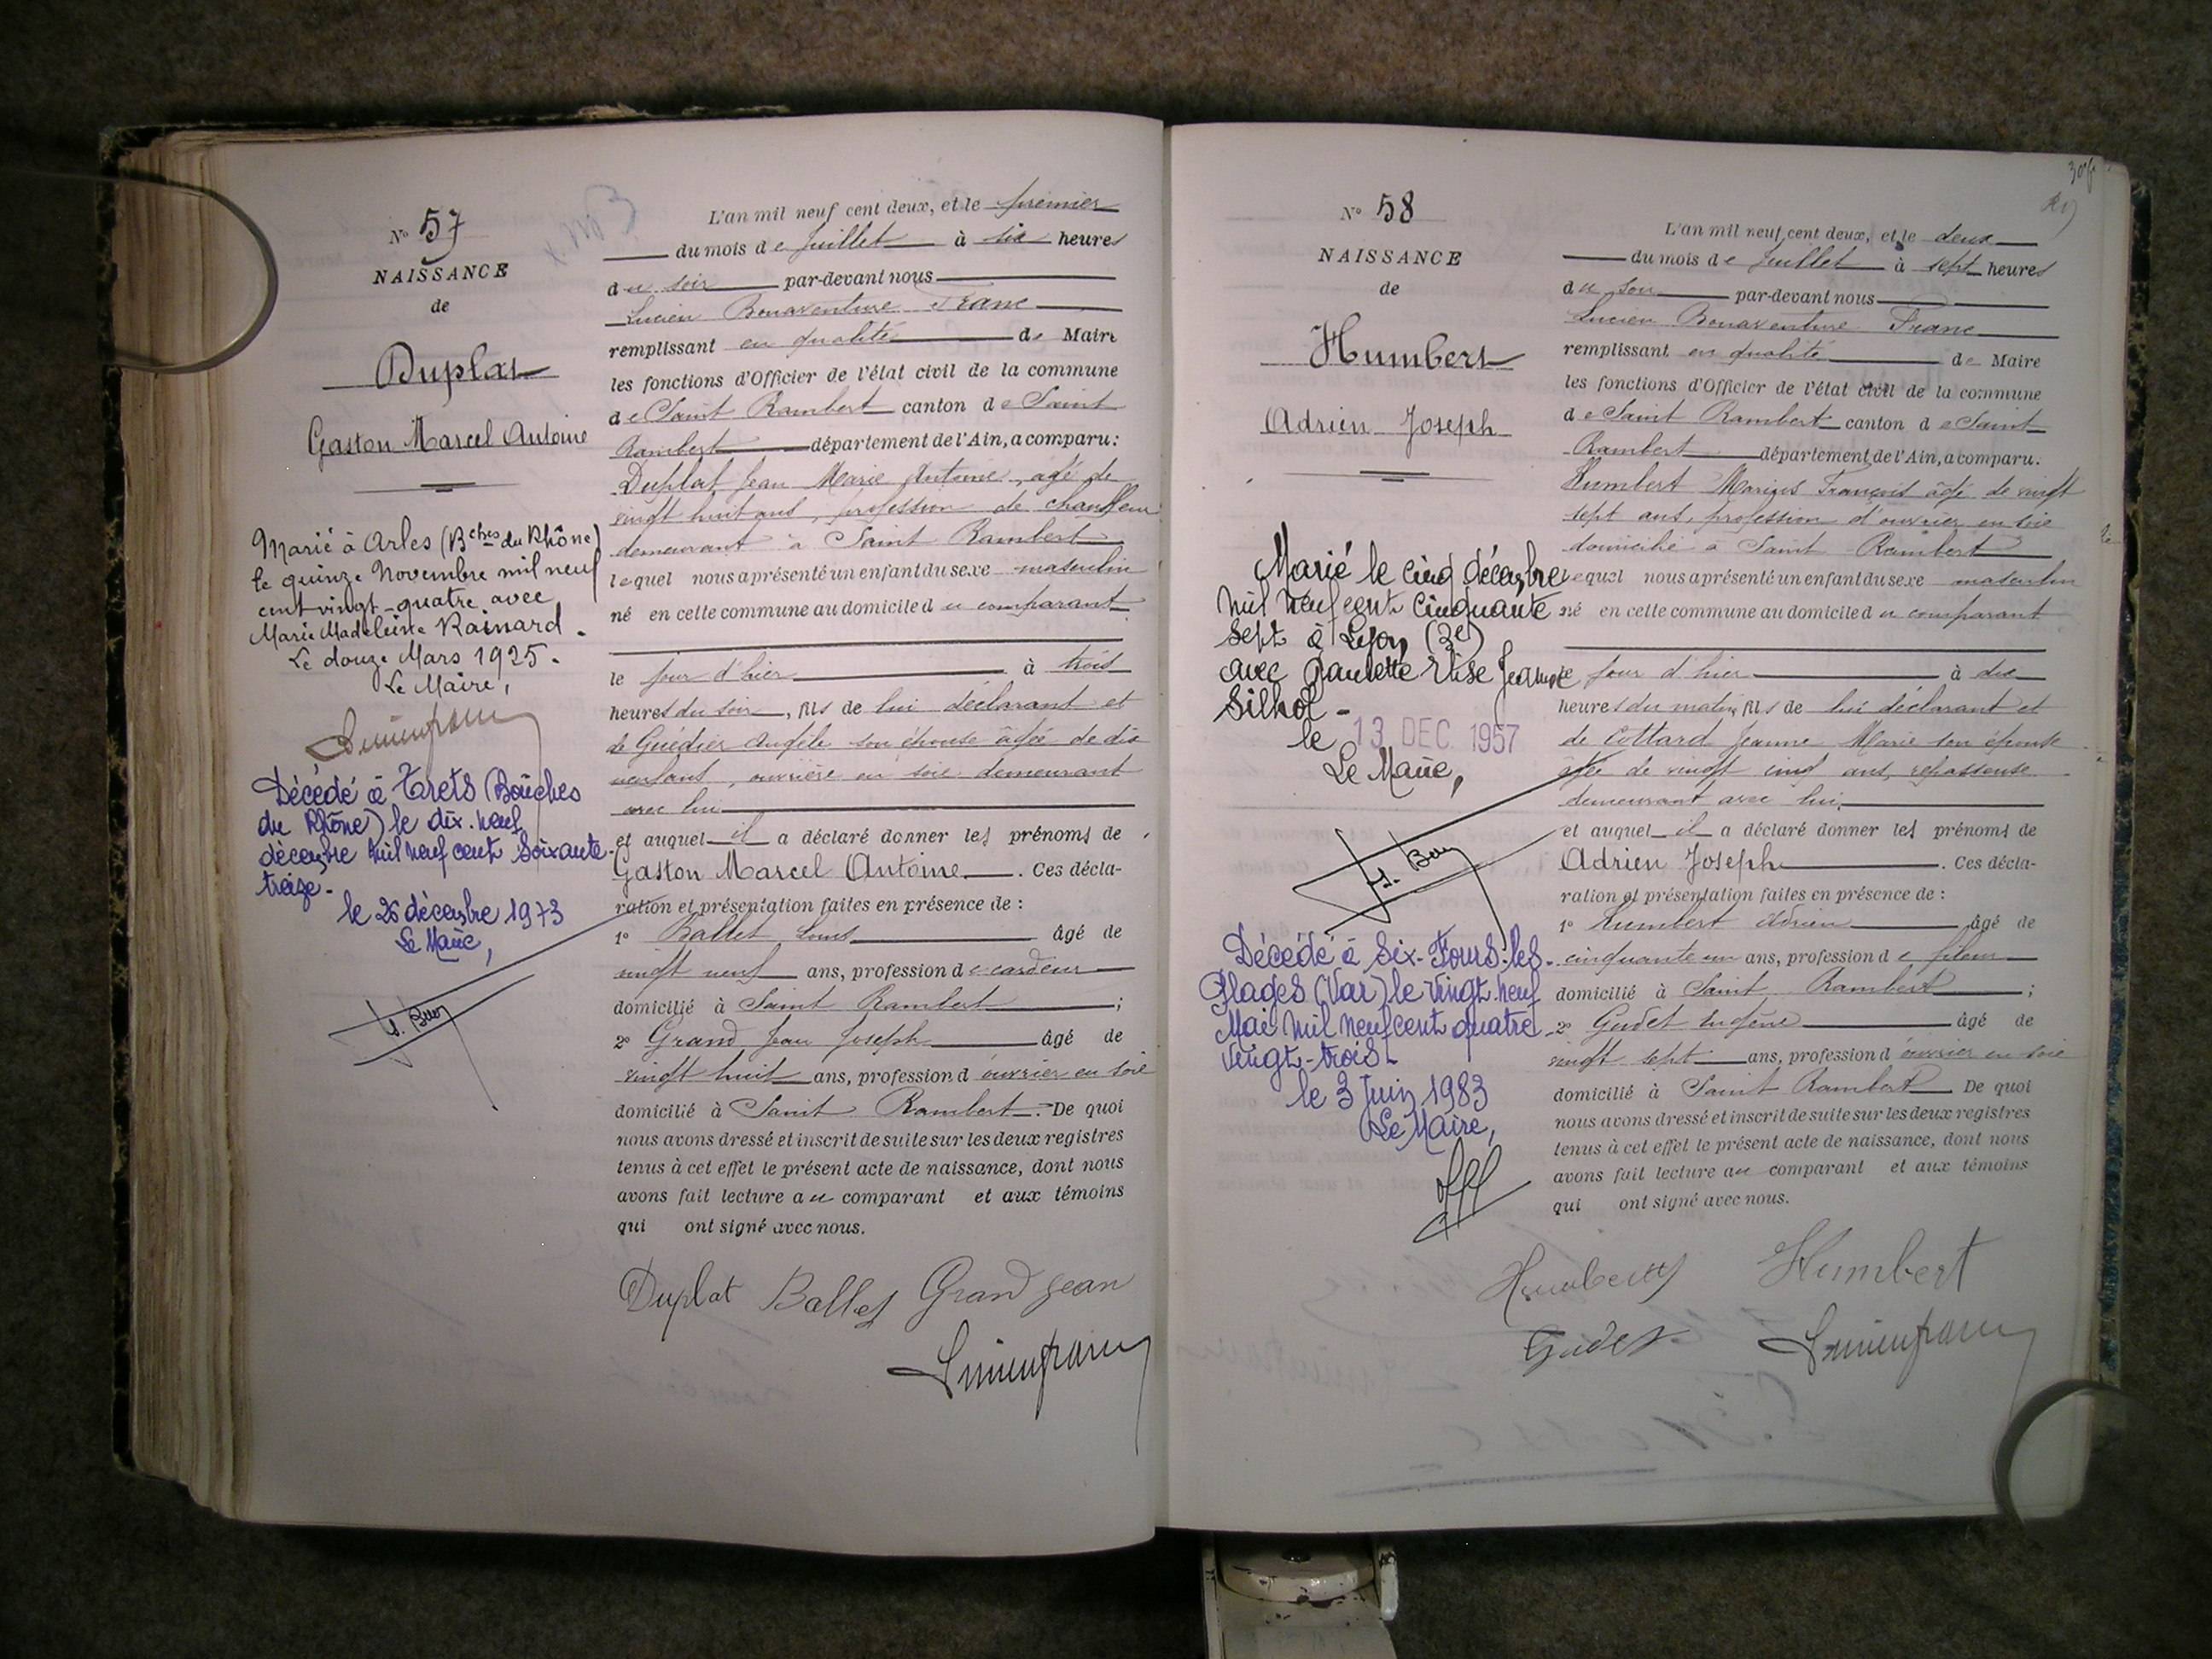 No 57
NAISSANCE
de
Duplat
Gaston Marcel Antoine
Marié à Arles (Bches du Rhône)
le quinze Novembre mil neuf
cent vingt-quatre avec
Marie Madeleine Rainard.
Le douze Mars 1925.
Le Maire,
Décédé à Trets (Bouches
du Rhône) le dix-neuf
décembre mil neuf cent soixante-
treize-
le 26 décembre 1973
Le Maire,
L'an mil neuf cent deux, et le premier
du mois de Juillet à six heures
du soir par-devant nous
Lucien Bonaventure Franc
remplissant en qualité de Maire
les fonctions d'Officier de l'état civil de la commune
de Saint Rambert canton de Saint
Rambert département de l'Ain, a comparu:
Duplat Jean Marie Antoine, agé de
vingt huit ans, profession de chauffeur
demeurant à Saint Rambert
lequel nous a présenté un enfant du sexe masculin
né en cette commune au domicile du comparant
le jour d'hier à trois
heures du soir, fils de lui déclarant et
de Guédier Angèle son épouse âgée de dix
neuf ans, ouvrière en soie demeurant
avec lui
et auquel il a déclaré donner les prénoms de
Gaston Marcel Antoine. Ces décla-
ration et présentation faites en présence de :
1° Ballet Louis âgé de
vingt neuf ans, profession de cardeur
domicilié à Saint Rambert ;
2° Grand Jean Joseph âgé de
vingt huit ans, profession d'ouvrier en soie
domicilié à Saint Rambert. De quoi
nous avons dressé et inscrit de suite sur les deux registres
tenus à cet effet le présent acte de naissance, dont nous
avons fait lecture au comparant et aux témoins
qui ont signé avec nous.
Duplat Ballet Grand jean
No 58
NAISSANCE
de
Humbert
Adrien Joseph
Marié le cinq décembre
mil neuf cent cinquante
sept à Lyon (3e)
avec Paulette Elise Jeanne
Silhol-
le 13 DEC 1957
Le Maire,
Décédé à Six-Fours-les-
Plages (Var) le vingt-neuf
Mai mil neuf cent quatre
vingt-trois-
le 3 Juin 1983
Le Maire,
L'an mil neuf cent deux, et le deux
du mois de Juillet à sept heures
du soir par-devant nous
Lucien Bonaventure Franc
remplissant en qualité de Maire
les fonctions d'Officier de l'état civil de la commune
de Saint Rambert canton de Saint
Rambert département de l'Ain, a comparu.
Humbert Marius François âgé de vingt
sept ans, profession d'ouvrier en soie
domicilié à Saint Rambert
lequel nous a présenté un enfant du sexe masculin
né en cette commune au domicile du comparant
le jour d'hier à dix
heures du matin, fils de lui déclarant et
de Cottard Jeanne Marie son épouse
âgée de vingt cinq ans, repasseuse
demeurant avec lui
et auquel il a déclaré donner les prénoms de
Adrien Joseph. Ces décla-
ration et présentation faites en présence de :
1° Humbert Adrien âgé de
cinquante un ans, profession de fileur
domicilié à Saint Rambert ;
2° Gudet Eugène âgé de
vingt sept ans, profession d'ouvrier en soie
domicilié à Saint Rambert De quoi
nous avons dressé et inscrit de suite sur les deux registres
tenus à cet effet le présent acte de naissance, dont nous
avons fait lecture au comparant et aux témoins
qui ont signé avec nous.
Humbert Humbert
Gudet